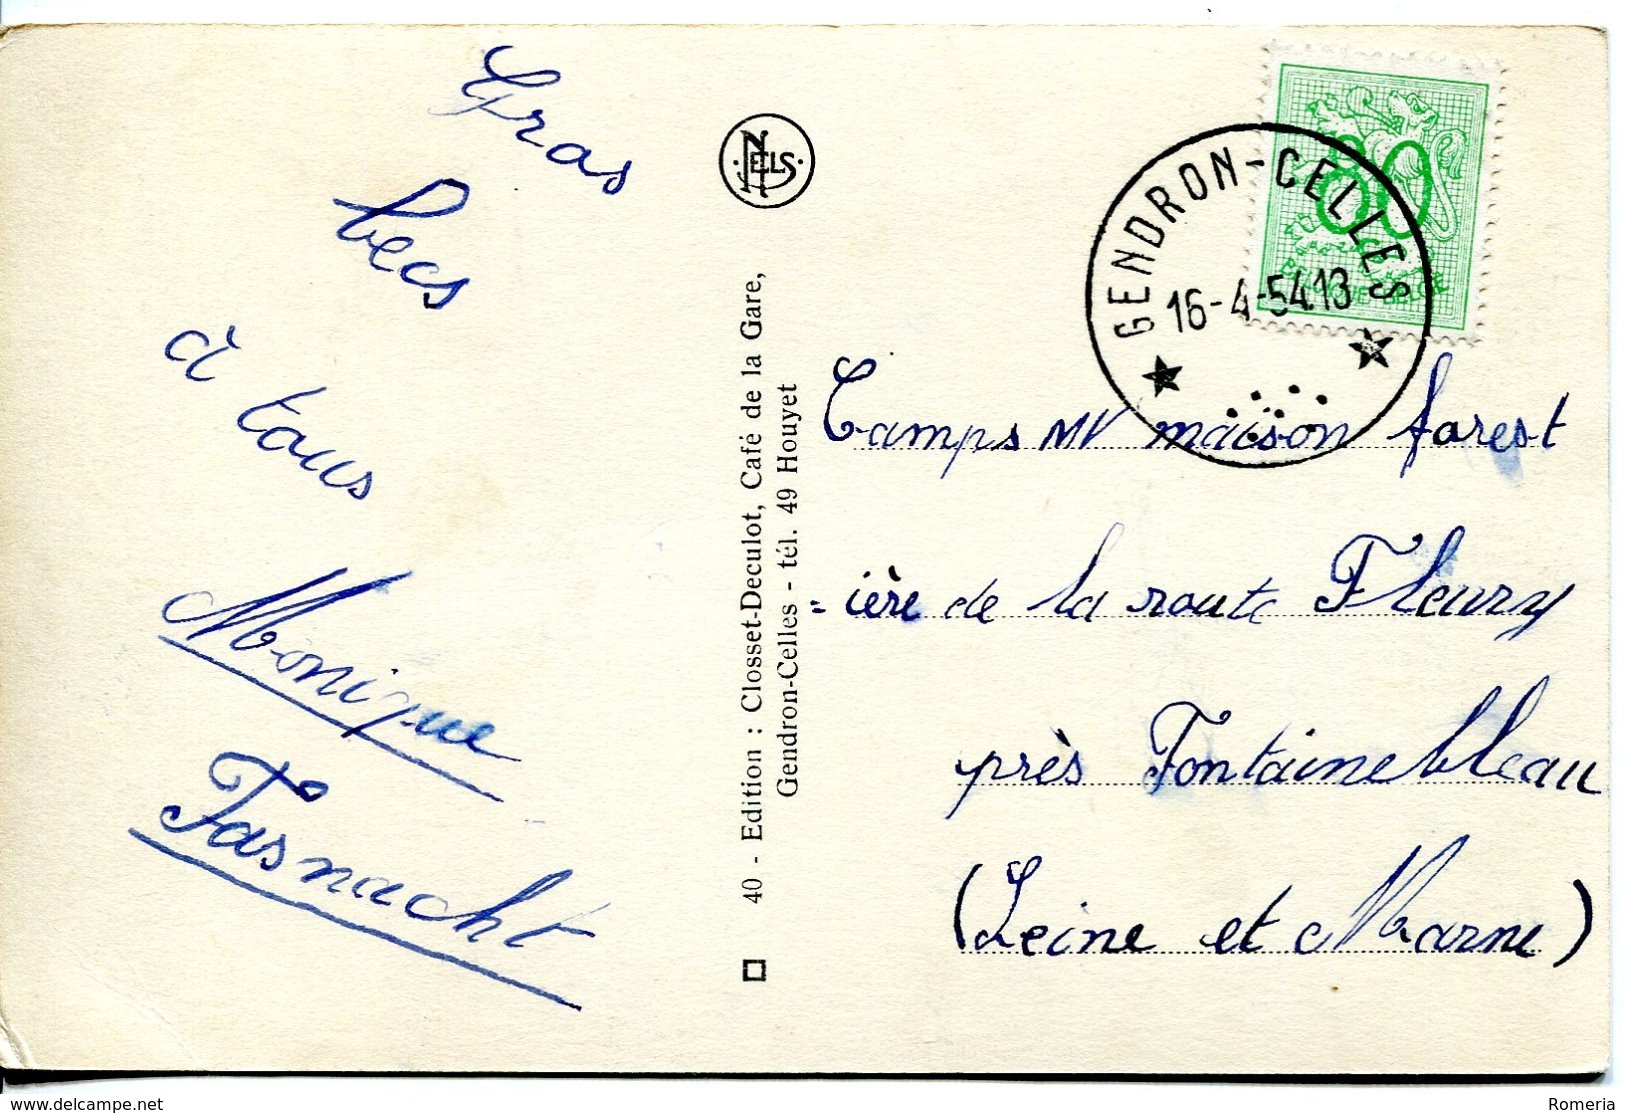 Gros
becs
à tous
Monique
Fasnacht
NELS
40 - Edition : Closset-Deculot, Café de la Gare,
Gendron-Celles - tél. 49 Houyet
GENDRON-CELLES
16-4-54.13
80
BELGIQUE-BELGIE
Camps MV maison forest
=ière de la route Fleury
près Fontainebleau
(Seine et Marne)
delcampe.net
Romeria